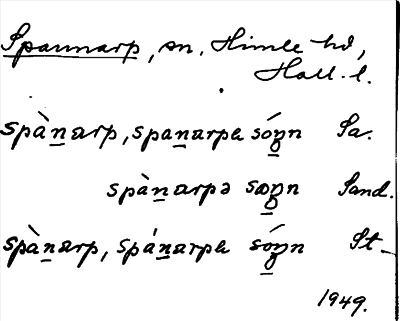 Spannarp, sn, Himle hd,
Hall. l.
spàn̲arp, span̲arpa sóγ̲n Sa.
spàn̲arpə sœγ̲n Sand.
spàn̲arp, spán̲arpa sóγ̲n St_
1949.